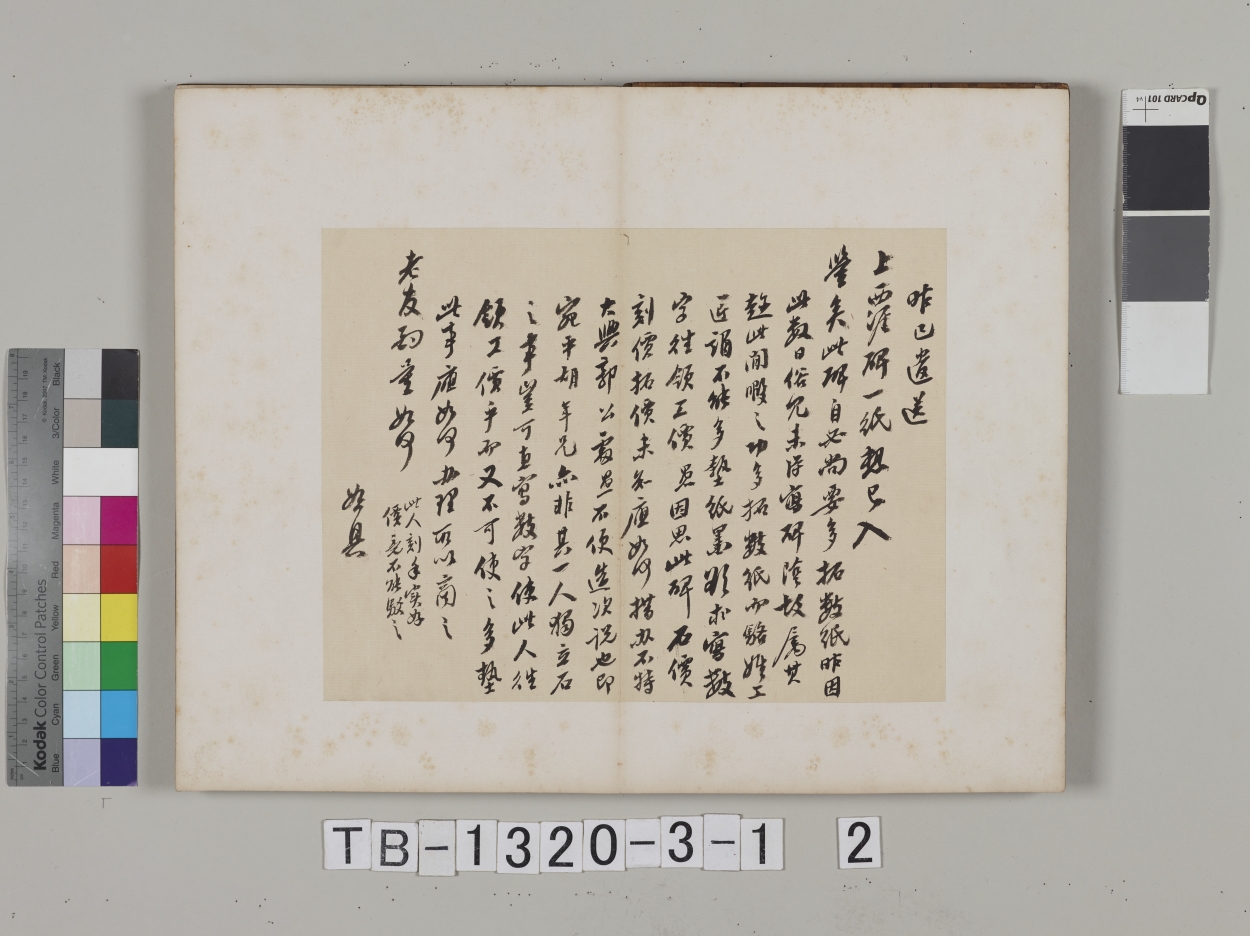 昨已遣送
上西涯碑一紙想已入
鑒矣此碑自必尚要多拓數紙昨因
此數日俗冗未得寫碑陰故屬其
趁此閒暇之功多拓數紙而駱姓工
匠謂不能多墊紙墨欲求寫數
字往領工價愚因思此碑石價
刻價拓價未知應如何措办不特
大興郭公處愚不便造次説也即
宛平胡年兄亦非其一人獨立石
之事豈可直寫數字使此人往
領工價乎而又不可使之多墊
此事應如何办理所以商之
老友酌量如何
此人刻手實好
價竟不能駁之
名具
TB-1320-3-1 2
QPCARD 101 v4
Kodak Color Control Patches
Blue Cyan Green Yellow Red Magenta White 3/Color Black